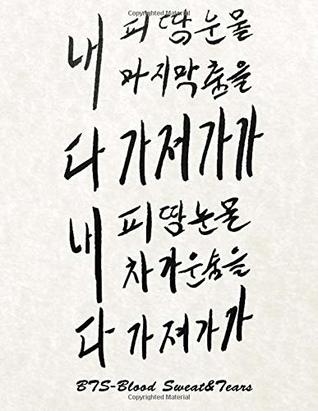 Copyrighted Material
내 피 땀 눈물
마지막 춤을
다 가져가 가
내 피 땀 눈물
차가운 숨을
다 가져가 가
BTS-Blood Sweat&Tears
Copyrighted Material